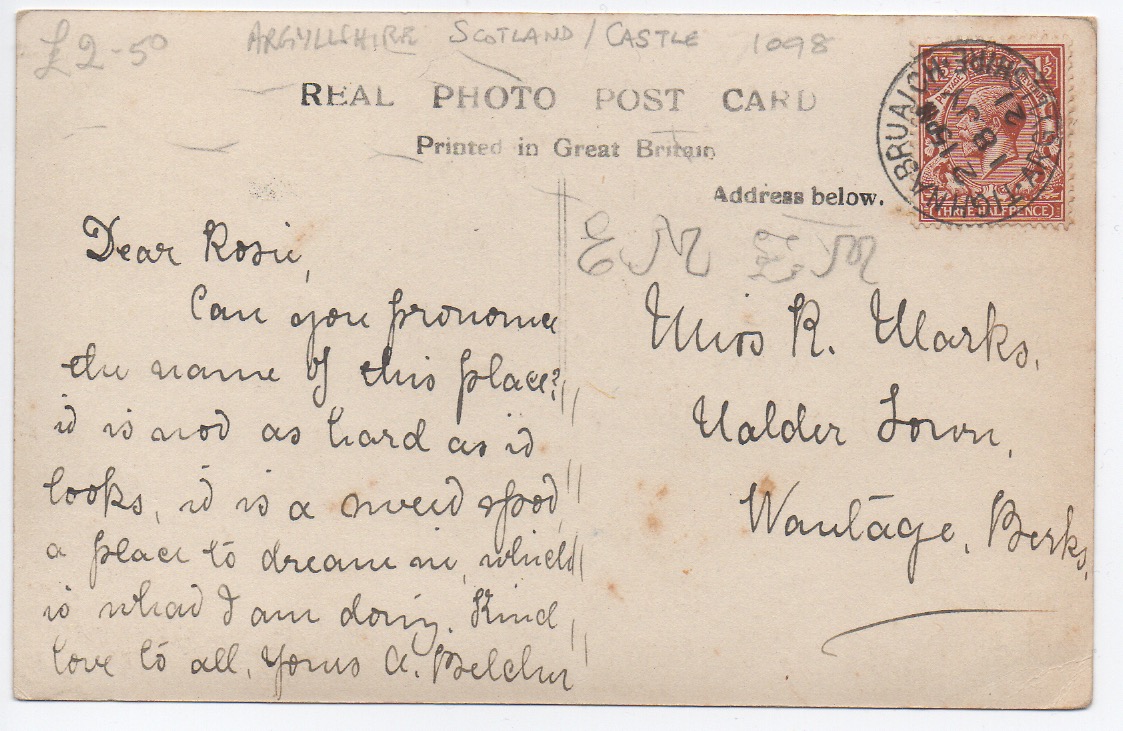 £2-50
ARGYLLSHIRE SCOTLAND/CASTLE 1098
REAL PHOTO POST CARD
Printed in Great Britain
Address below.
TIGHNABRUAICH·ARGYLLSHIRE
2 15 PM
18 JY
21
THREE HALFPENCE
Dear Rosie,
Can you pronounce
the name of this place?
it is not as hard as it
looks, it is a sweet spot,
a place to dream in, which
is what I am doing. Kind
love to all, Yours A. Belcher
Miss R. Marks,
Nalder Town,
Wantage, Berks.